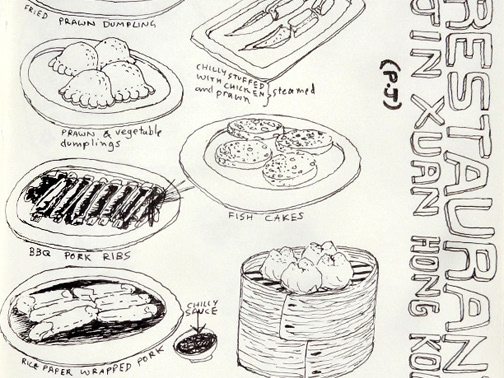 FRIED PRAWN DUMPLING
CHILLY STUFFED
WITH CHICKEN
and prawn
steamed
PRAWN & vegetable
dumplings
FISH CAKES
BBQ PORK RIBS
CHILLY
SAUCE
RICE PAPER WRAPPED PORK
RESTAURAN
IN XUAN HONG KO
(P.T)